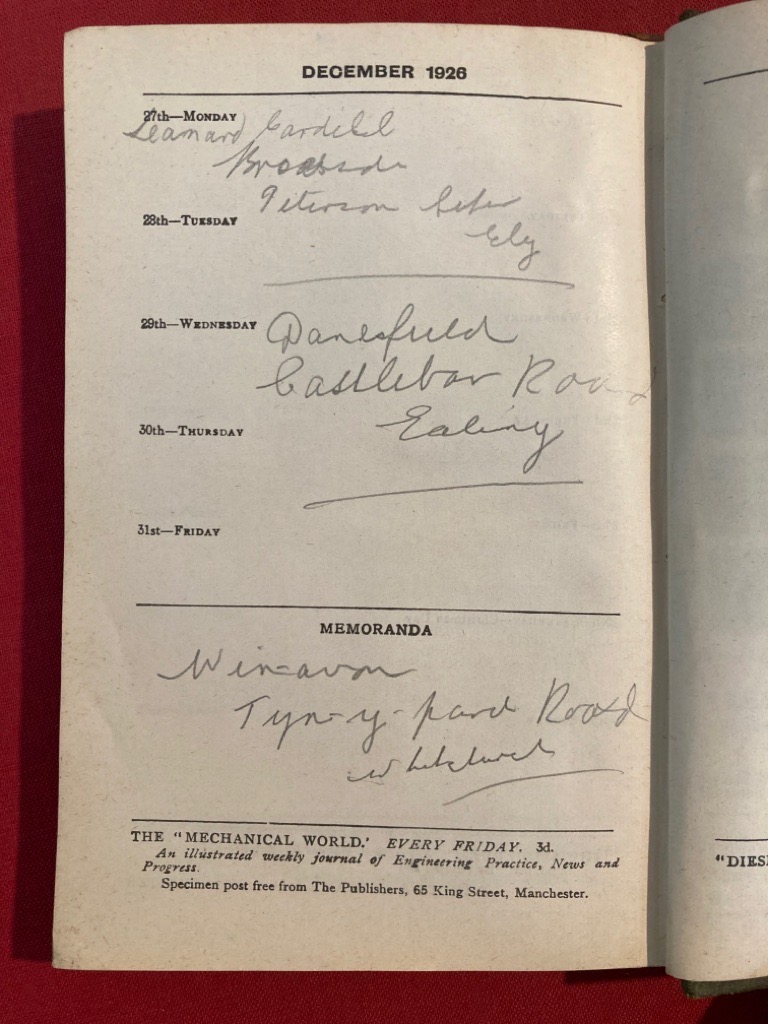 DECEMBER 1926
27th—MONDAY
Leanard
28th—TUESDAY
Peterson
Ely
29th—WEDNESDAY
Danesfield
Castlebar Road
30th—THURSDAY
Ealing
31st—FRIDAY
MEMORANDA
Win-avon
Tyn-y-parc Road
Whitchurch
THE "MECHANICAL WORLD.' EVERY FRIDAY. 3d.
An illustrated weekly journal of Engineering Practice, News and
Progress.
Specimen post free from The Publishers, 65 King Street, Manchester.
"DIES